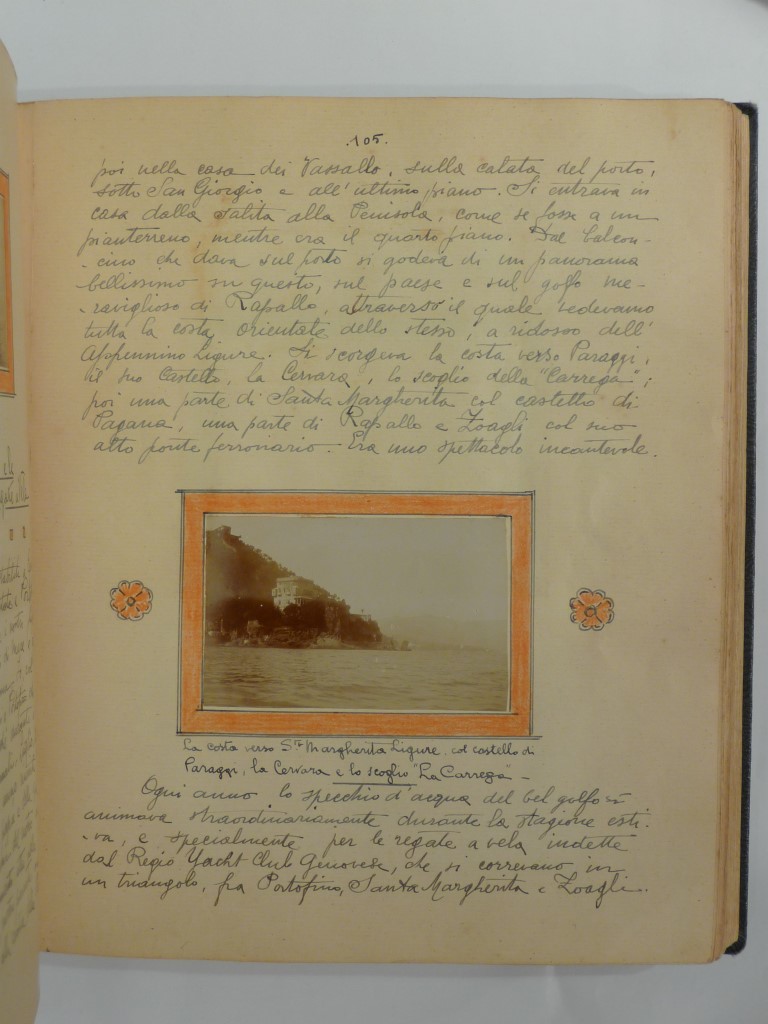 .105.
poi nella casa dei Vassallo, sulla calata del porto,
sotto San Giorgio e all'ultimo piano. Si entrava in
casa dalla salita alla Penisola, come se fosse a un
pianterreno, mentre era il quarto piano. Dal balcon-
-cino che dava sul porto si godeva di un panorama
bellissimo su questo, sul paese e sul golfo me-
-raviglioso di Rapallo, attraverso il quale vedevamo
tutta la costa orientale dello stesso, a ridosso dell'
Appennino Ligure. Si scorgeva la costa verso Paraggi,
il suo Castello, la Cervara, lo scoglio della "Carrega";
poi una parte di Santa Margherita col castello di
Pagana, una parte di Rapallo e Zoagli col suo
alto ponte ferroviario. Era uno spettacolo incantevole.
La costa verso Sta Margherita Ligure, col castello di
Paraggi, la Cervara e lo scoglio "La Carrega" -
Ogni anno lo specchio d'acqua del bel golfo si
animava straordinariamente durante la stagione esti-
-va, e specialmente per le regate a vela indette
dal Regio Yacht Club Genovese, che si correvano in
un triangolo, fra Portofino, Santa Margherita e Zoagli.